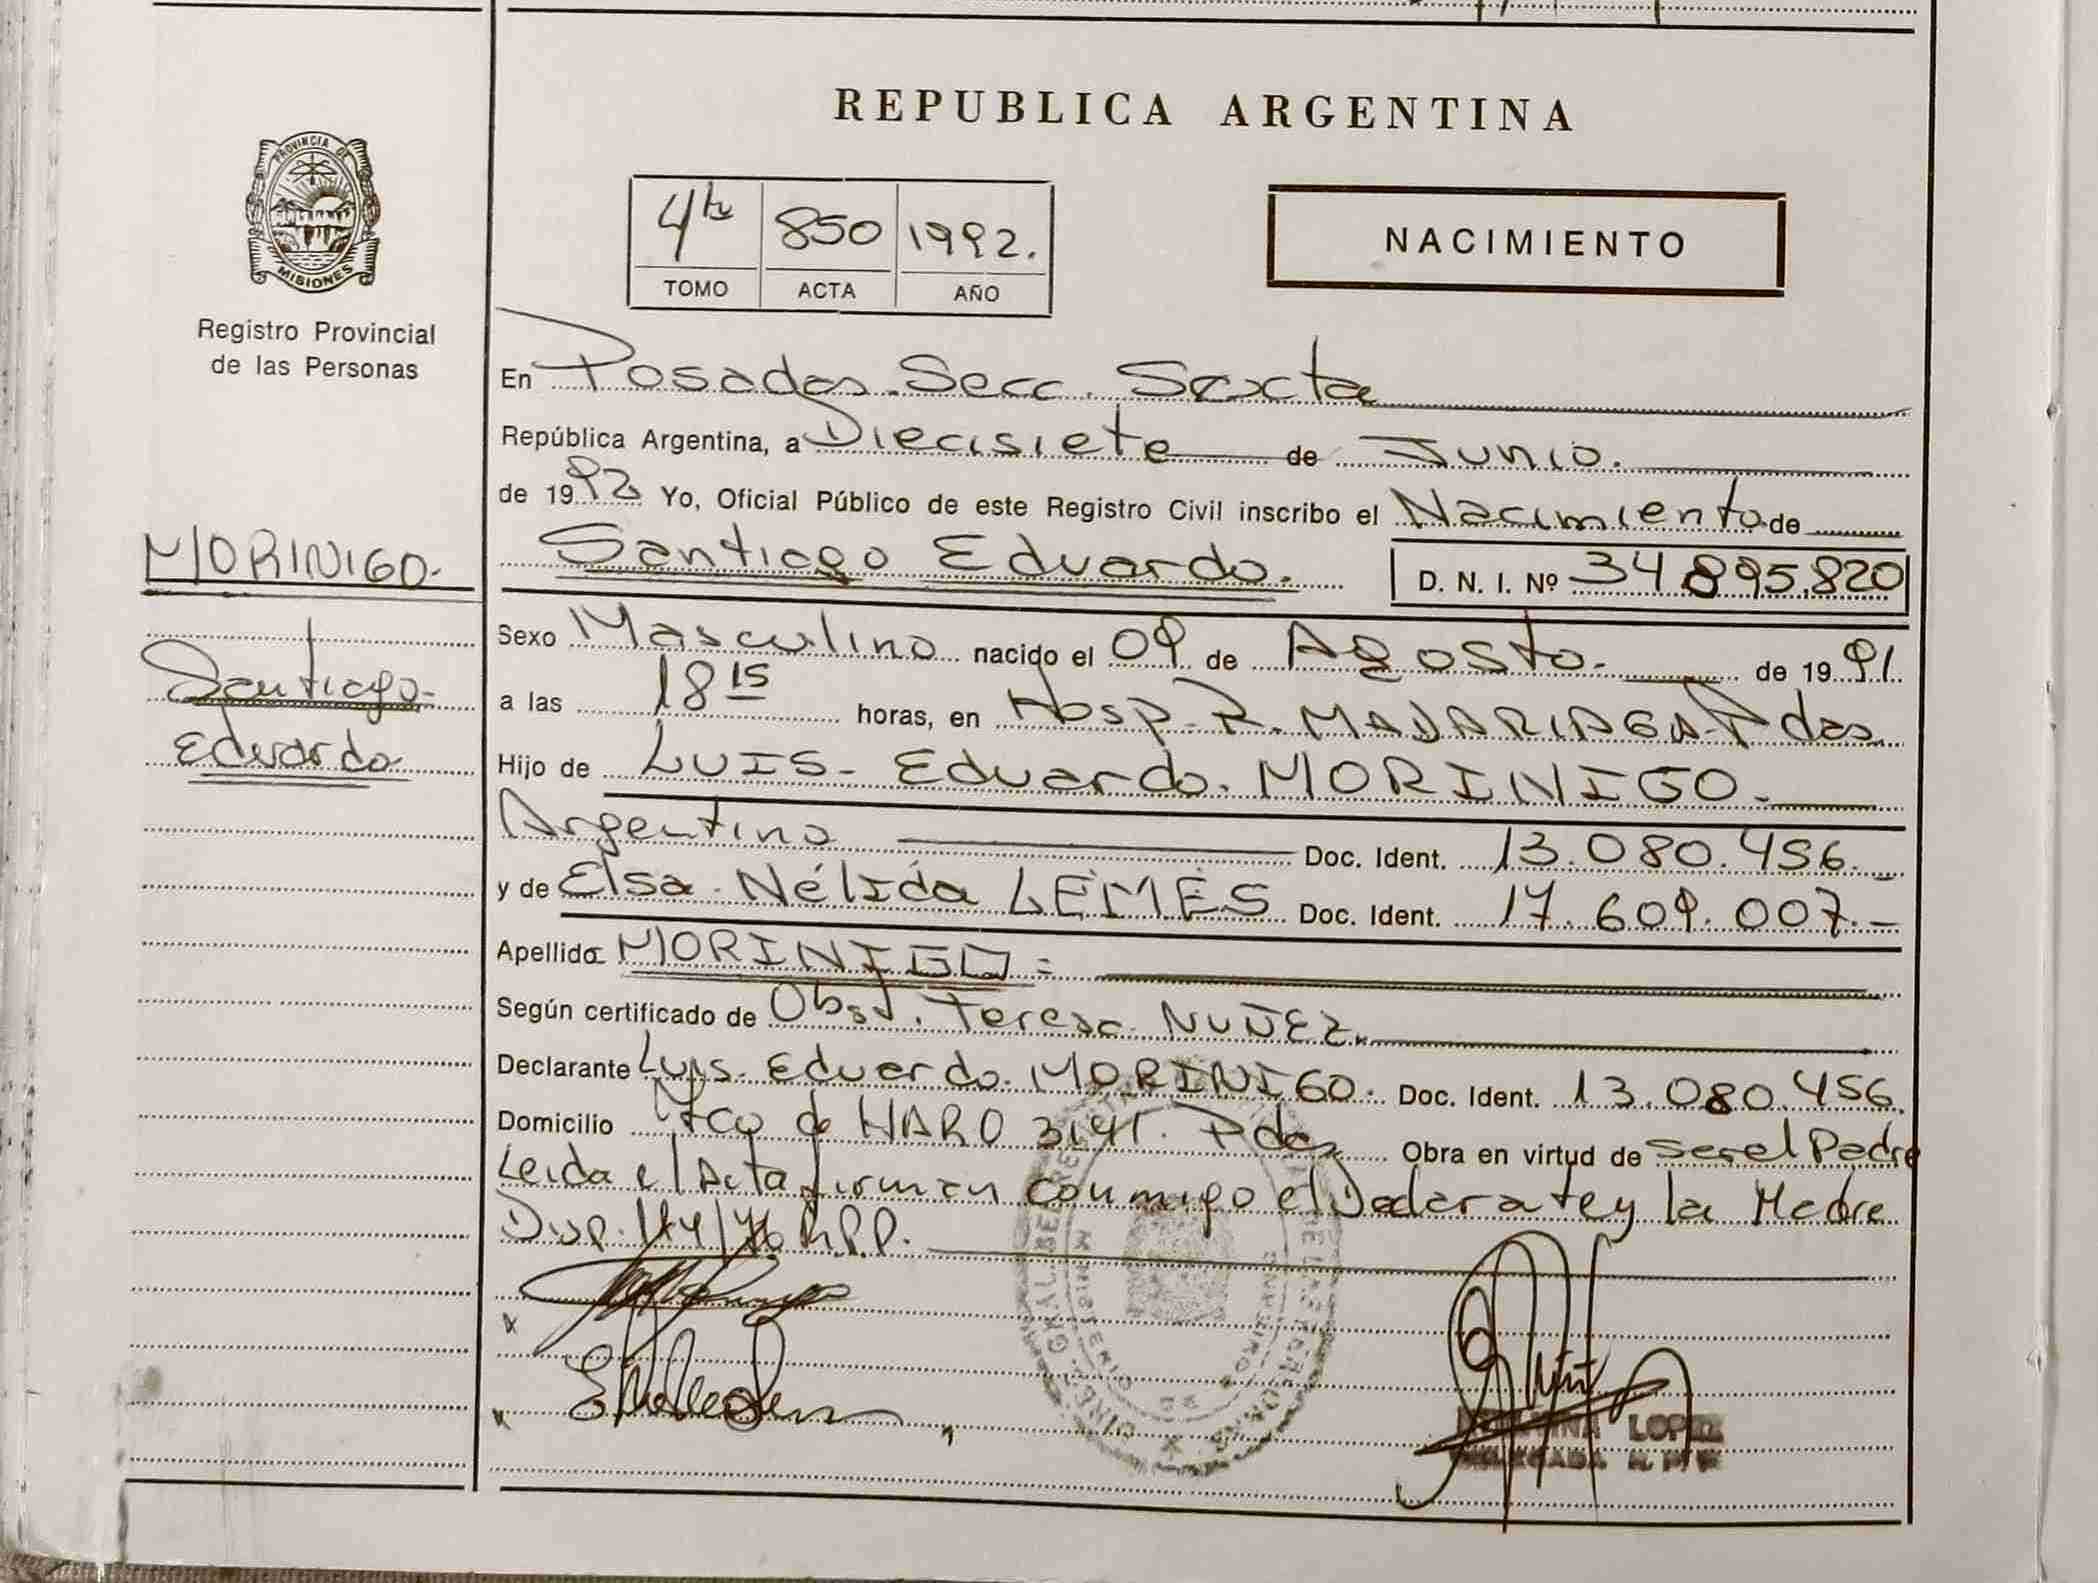 REPUBLICA ARGENTINA
PROVINCIA DE
MISIONES
Registro Provincial
de las Personas
4to 850 1992.
TOMO ACTA AÑO
NACIMIENTO
En Posadas. Secc. Sexta
República Argentina, a Diecisiete de Junio.
de 1992 Yo, Oficial Público de este Registro Civil inscribo el Nacimiento de
MORINIGO.
Santiago Eduardo. D. N. I. Nº 34.895.820
Santiago
Eduardo
Sexo Masculino nacido el 09 de Agosto. de 1991.
a las 18 15 horas, en Hosp. R. MADARIAGA Pdas
Hijo de LUIS Eduardo. MORINIGO.
Argentino Doc. Ident. 13.080.456.
y de Elsa Nélida LEMES Doc. Ident. 17.609.007.-
Apellido MORINIGO
Según certificado de Obst. Teresa NUÑEZ
Declarante Luis Eduardo MORINIGO. Doc. Ident. 13.080.456.
Domicilio Fco de HARO 3141. Pdas Obra en virtud de ser el Padre
Leida el Acta firman conmigo el Declarate y la Madre
Disp. R.P.P.
LOPEZ
DELEGADA